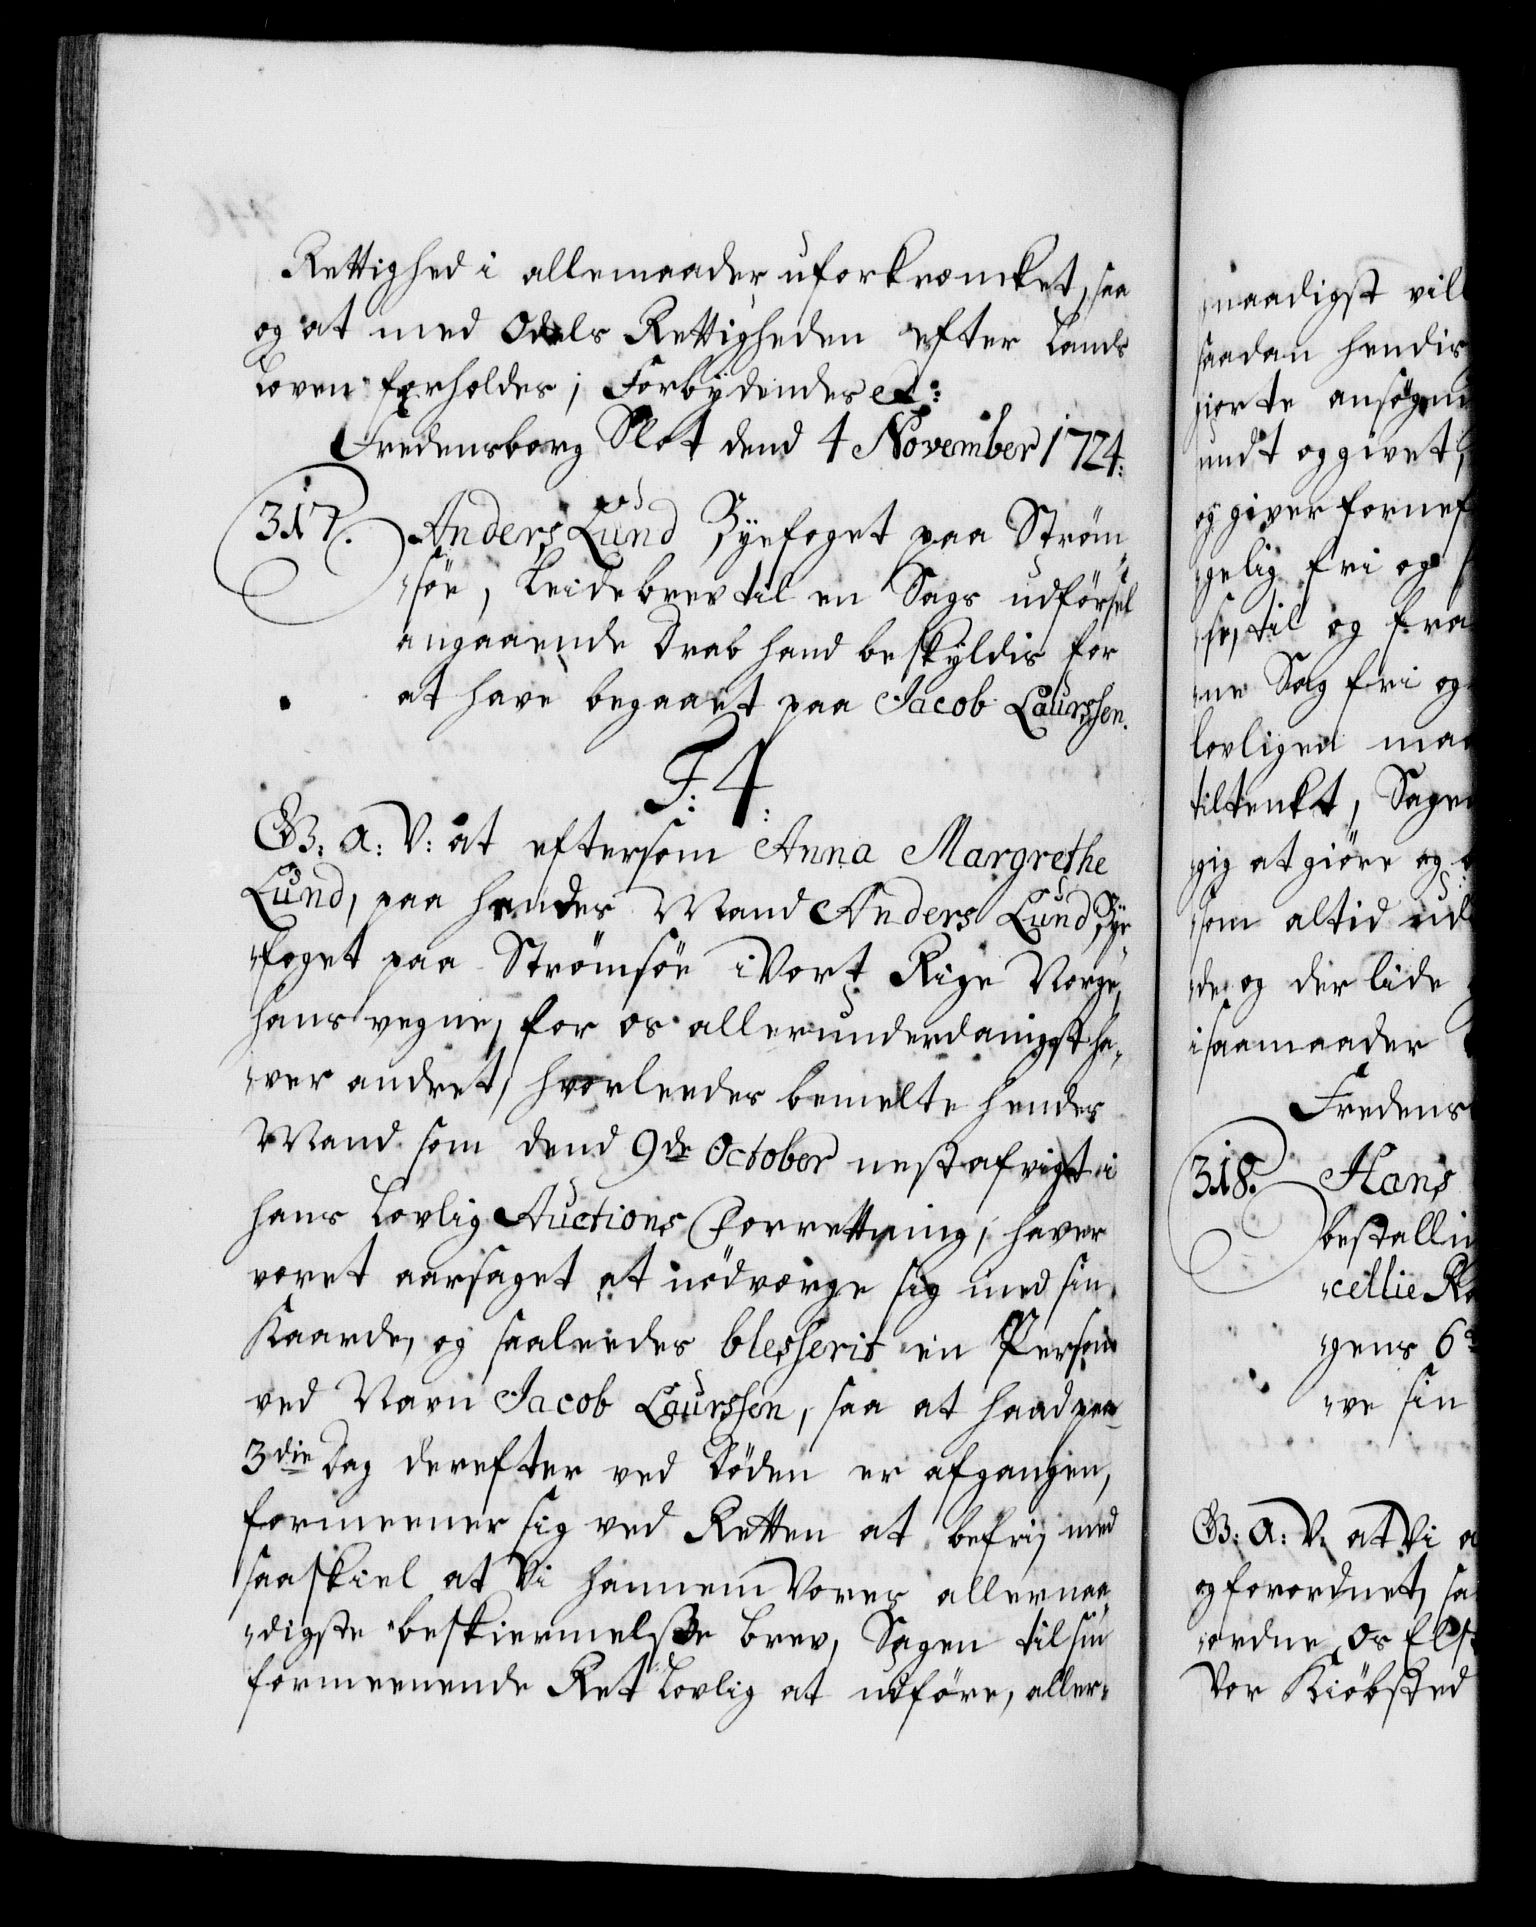 Rettighed i allemaader uforkræncket, saa
og at med Odels Rettigheden efter Lands
Loven forholdes; Forbydendes etc:
Fredensborg Slot dend 4 November 1724:
317. Anders Lund Byefoget paa Ström-
söe, Leidebrev til en Sags udförsel
angaaende Drab hand beskyldis for
at have begaaet paa Jacob Laurssen.
F: 4.
G: A: V: at eftersom Anna Margrethe
Lund, paa hendes Mand Anders Lund Bye-
foget paa Strömsöe i Vort Rige Norge,
hans vegne, for os allerunderdanigst ha-
ver andret, hvorleedes bemelte hendes
Mand som dend 9de October nestafvigt i
hans Lovlig Auctions Forrettning, haver
voret aarsaget at nödværge sig med sin
Kaarde, og saaleedes blesserit en Person
ved Navn Jacob Laurssen, saa at hand paa
3die Dag derefter ved Döden er afgangen,
formeener sig ved Retten at befrj, med
saa skiel at Vi hannem Vores allernaa-
digste beskiermelsse brev, Sagen til sin
formeenende Ret Lovlig at udföre, aller-
naadigst vil
saadan hendis
giorte ansögn
undt og givet,
og giver fornef
gelig fri og
se, til og fra
ne Sag fri og
lovligen maa
tiltenkt, Sage
pig at giöre og
som altid ud
de og der lide
i saamaader
Fredens
318. Hans
bestalli
cellie Ra
gens 6
ve sin
G: A: V: at Vi a
og forordnet, sa
ordne Os Els
Vor Kiöbsted